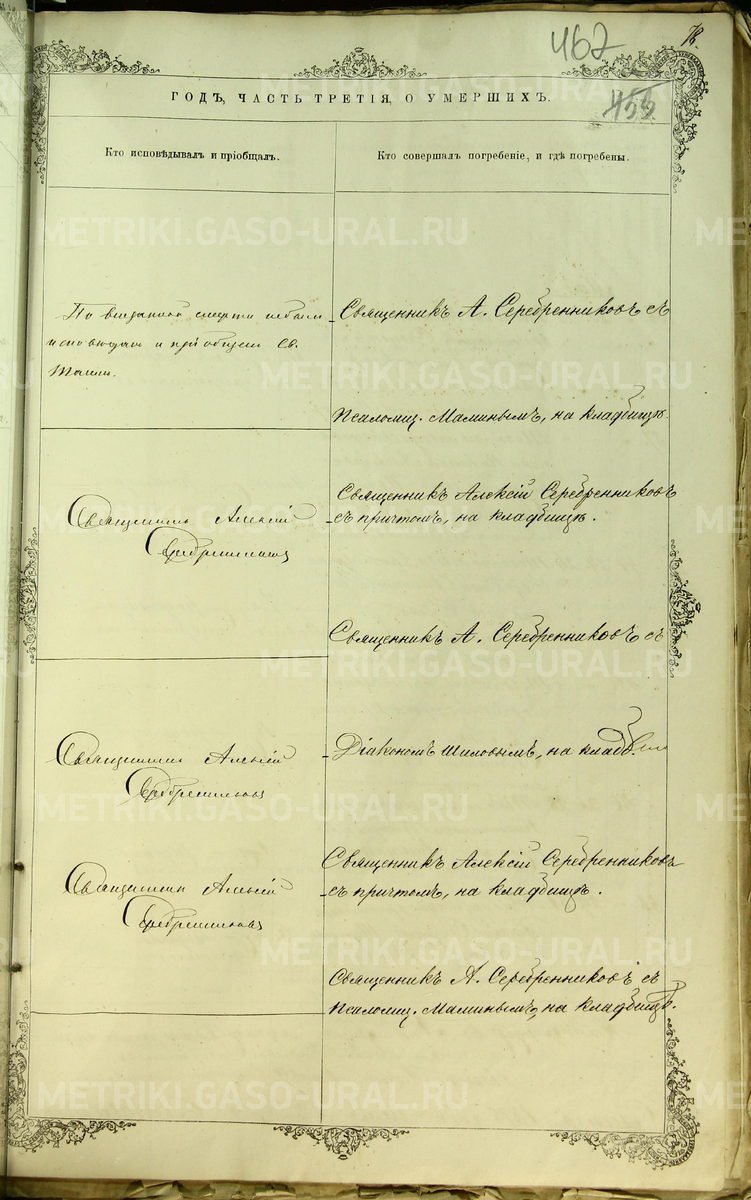 462
78.
455
ГОДЪ, ЧАСТЬ ТРЕТІЯ, О УМЕРШИХЪ.
Кто исповѣдывалъ и пріобщалъ.
Кто совершалъ погребеніе, и гдѣ погребены.
По внезапной смерти небыли
исповѣданы и пріобщены Св.
Таинъ.
Священникъ А. Серебренниковъ съ
Псаломщ. Маминымъ, на кладбищѣ.
Священникъ Алексій
Серебренниковъ
Священникъ Алексій Серебренниковъ
съ причтомъ, на кладбищѣ.
Священникъ А. Серебренниковъ съ
Діакономъ Шиловымъ, на кладб.
Священникъ Алексій
Серебренниковъ
Священникъ Алексій
Серебренниковъ
Священникъ Алексій Серебренниковъ
съ причтомъ, на кладбищѣ.
Священникъ А. Серебренниковъ съ
Псаломщ. Маминымъ, на кладбищѣ.
METRIKI.GASO-URAL.RU